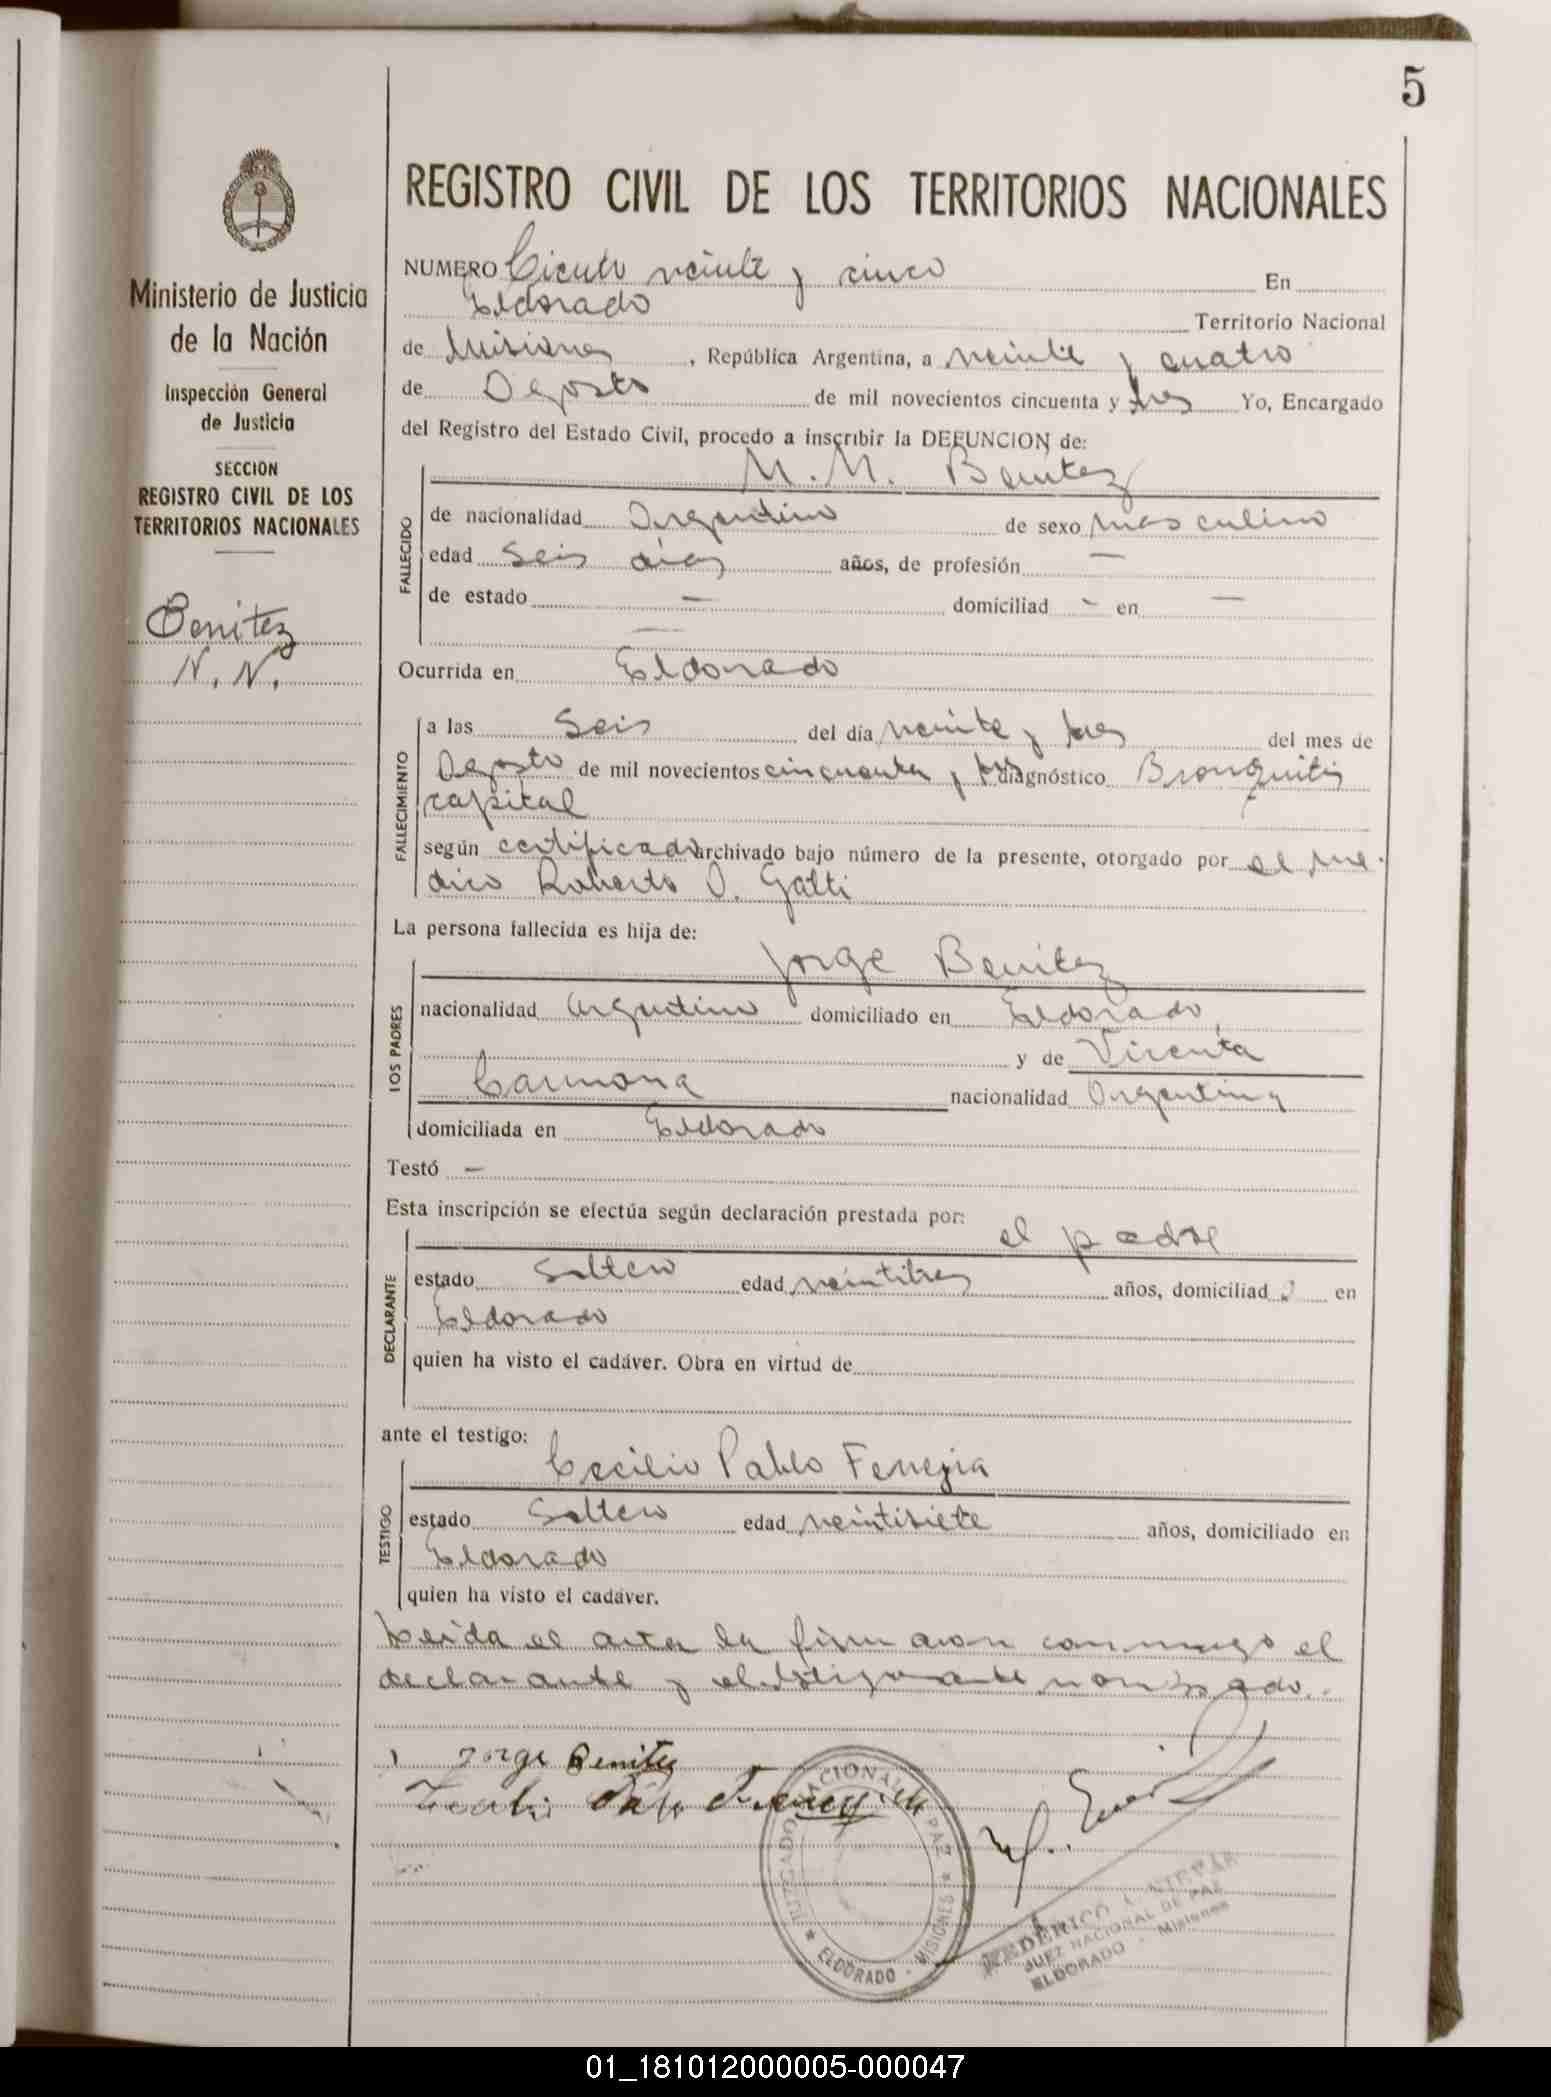 5
REGISTRO CIVIL DE LOS TERRITORIOS NACIONALES
Ministerio de Justicia
de la Nación
Inspección General
de Justicia
SECCION
REGISTRO CIVIL DE LOS
TERRITORIOS NACIONALES
Benitez
N. N.
NUMERO Ciento veinte y cinco En
Eldorado Territorio Nacional
de Misiones, República Argentina, a veinte y cuatro
de Agosto de mil novecientos cincuenta y tres Yo, Encargado
del Registro del Estado Civil, procedo a inscribir la DEFUNCION de:
N. N. Benitez
FALLECIDO
de nacionalidad Argentino de sexo masculino
edad seis días años, de profesión —
de estado — domiciliad - en —
—
Ocurrida en Eldorado
FALLECIMIENTO
a las seis del día veinte y tres del mes de
Agosto de mil novecientos cincuenta y tres diagnóstico Bronquitis
capital
según certificado archivado bajo número de la presente, otorgado por el mé-
dico Roberto O. Gatti
La persona fallecida es hija de:
Jorge Benitez
LOS PADRES
nacionalidad Argentino domiciliado en Eldorado,
y de Vicenta
Carmona nacionalidad Argentina
domiciliada en Eldorado
Testó —
Esta inscripción se efectúa según declaración prestada por:
el padre
DECLARANTE
estado soltero edad veintitres años, domiciliad o en
Eldorado
quien ha visto el cadáver. Obra en virtud de
ante el testigo:
Cecilio Pablo Ferreyra
TESTIGO
estado soltero edad veintisiete años, domiciliado en
Eldorado
quien ha visto el cadáver.
Leida el acta la firmaron conmigo el
declarante y el testigo antes nombrado.
Jorge Benitez
JUZGADO NACIONAL DE PAZ
★ ELDORADO - MISIONES ★
FEDERICO
JUEZ NACIONAL DE PAZ
ELDORADO - Misiones
01_181012000005-000047